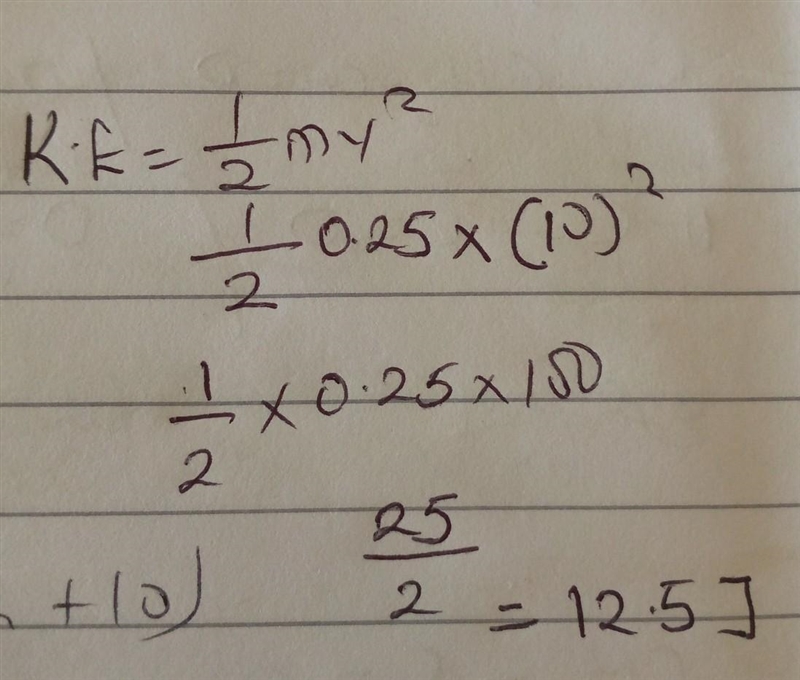 K.E = 1/2 mv²
1/2 0.25 × (10)²
1/2 × 0.25 × 100
25/2 = 12.5 J
+10)